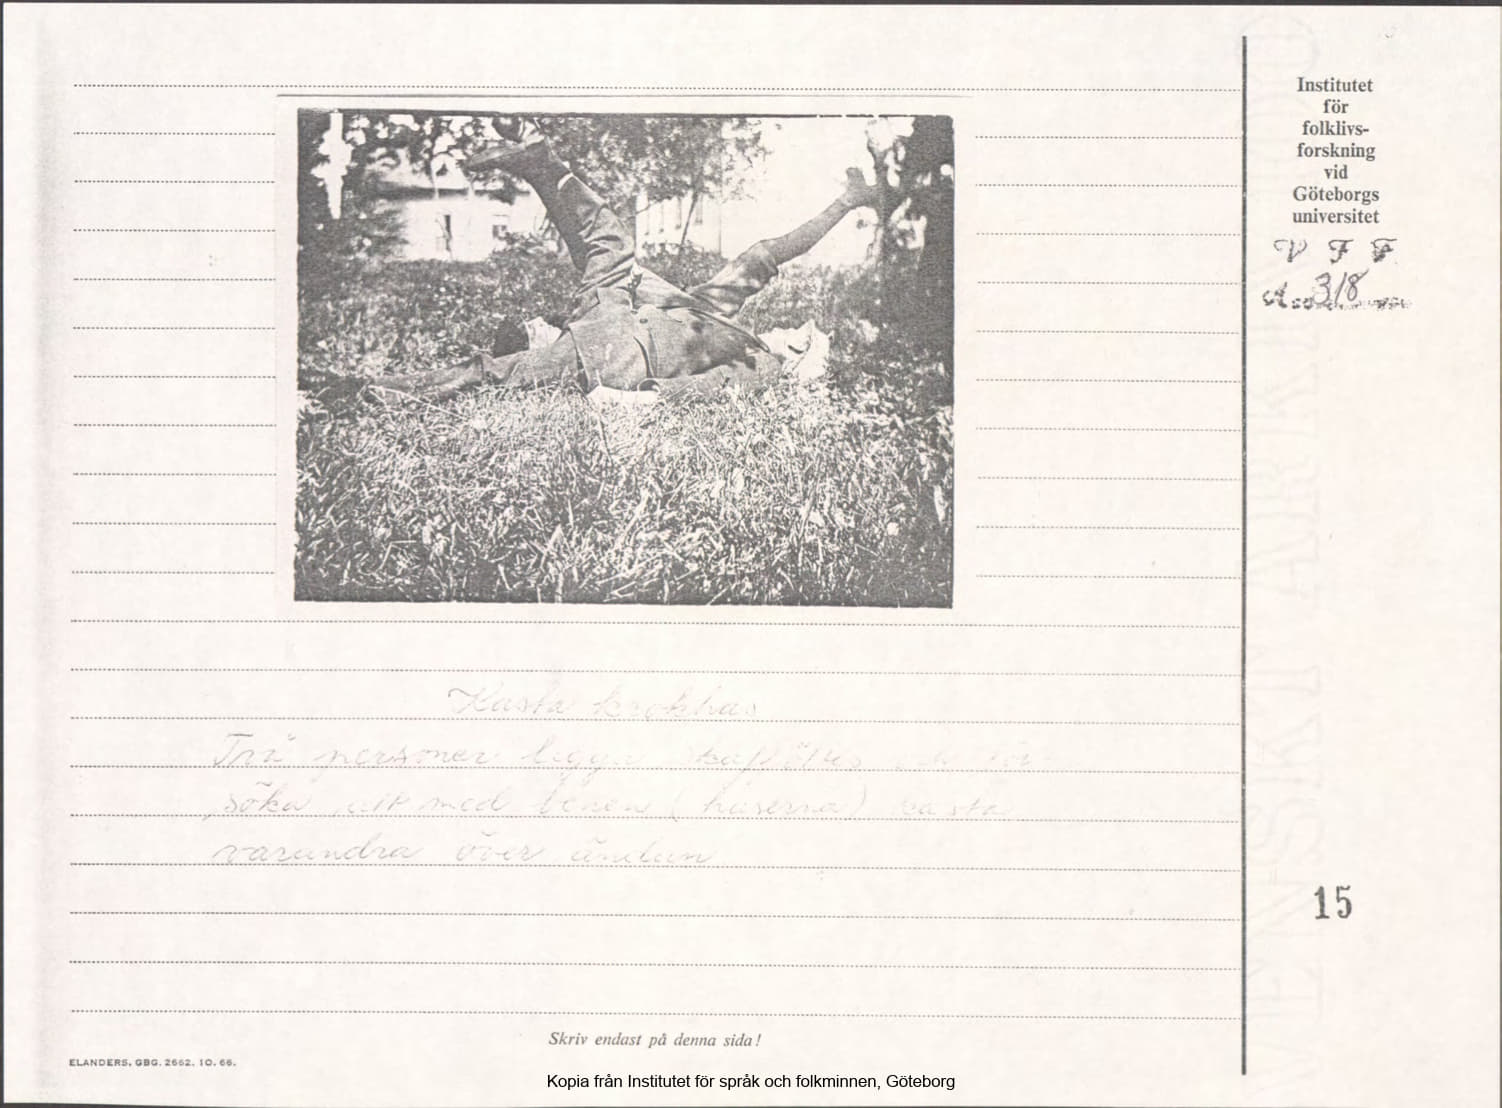 Institutet
för
folklivs-
forskning
vid
Göteborgs
universitet
V F F
318
Kasta krokhas
Två personer ligga skaföttes och för-
söka att med benen (haserna) kasta
varandra över ändan
15
Skriv endast på denna sida!
ELANDERS, GBG. 2662. 10. 66.
Kopia från Institutet för språk och folkminnen, Göteborg